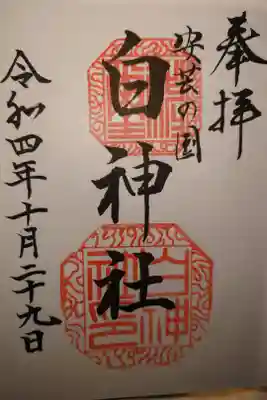 奉拝
安芸の国
白神社
令和四年十月二十九日